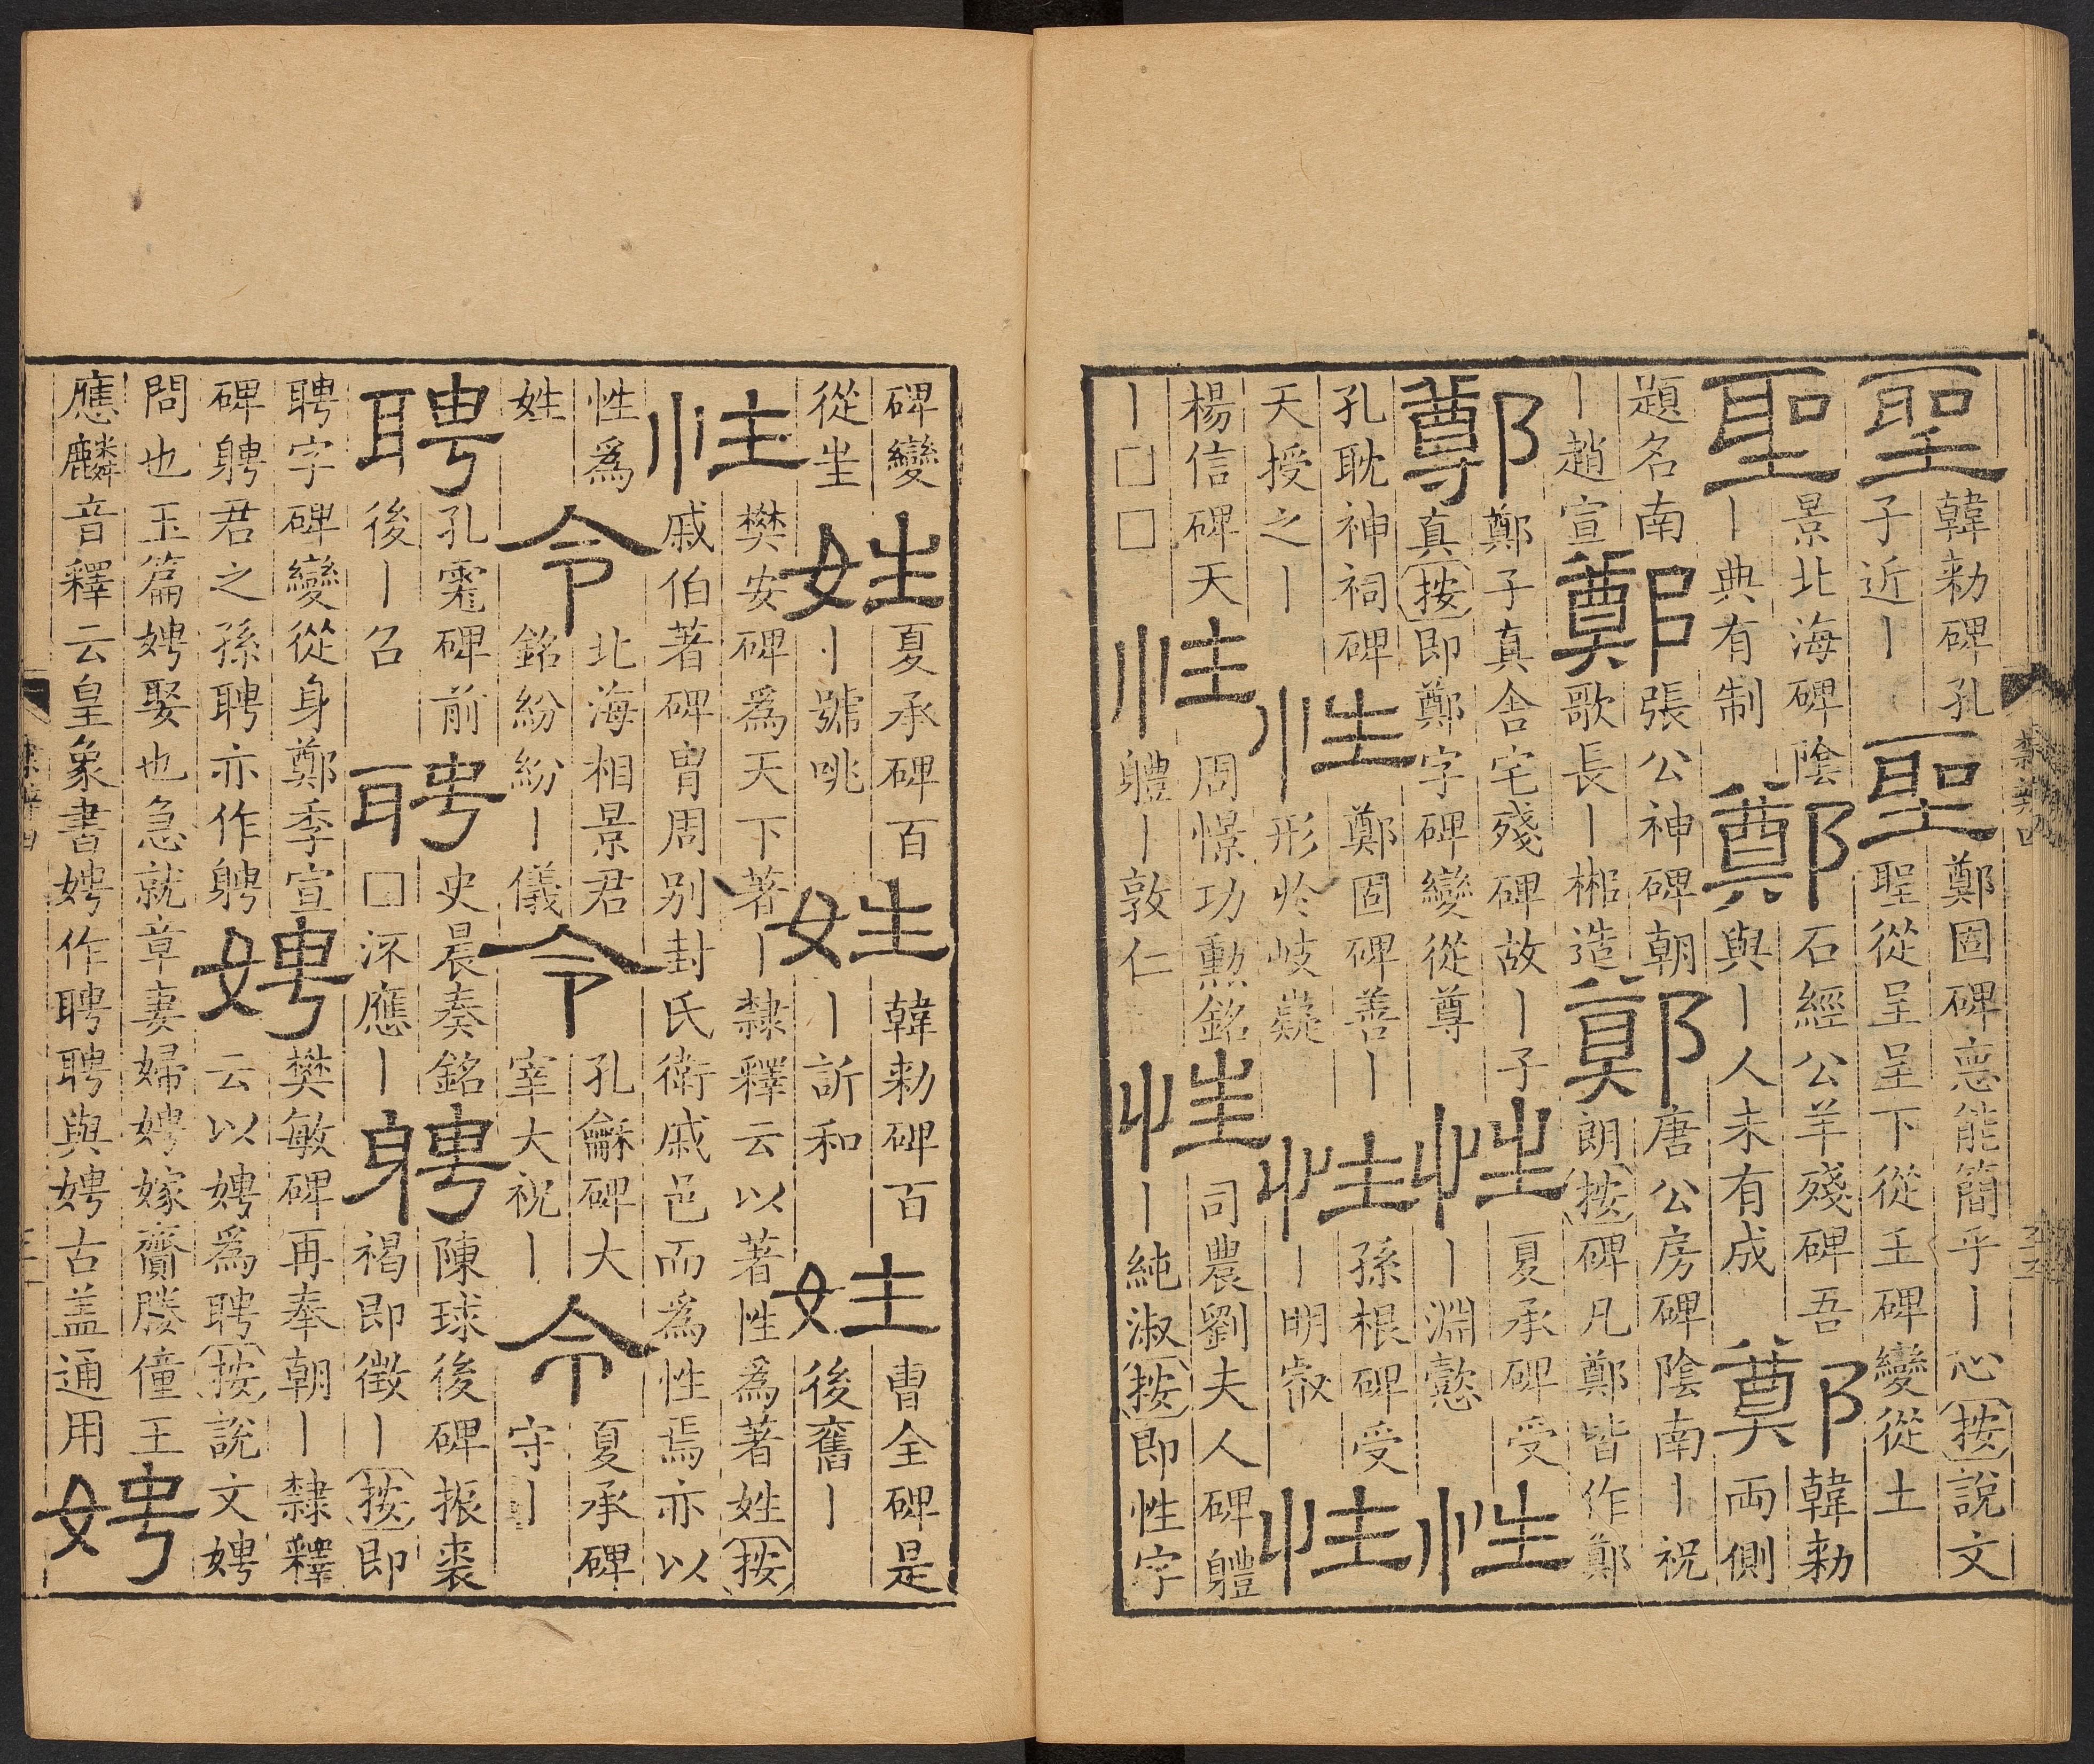 聖韓勑碑孔子近丨聖鄭固碑恧能簡乎丨心按說文聖從呈呈下從王碑變從土
聖景北海碑陰丨典有制鄭石經公羊殘碑吾與丨人未有成鄭韓勑兩側
題名南丨趙宣鄭張公神碑朝歌長丨郴造鄭唐公房碑陰南丨祝朗按碑凡鄭皆作鄭
鄭鄭子真舍宅殘碑故丨子真按即鄭字碑變從尊性夏承碑受丨淵懿性
孔耽神祠碑天授之丨性鄭固碑善丨形於岐嶷性孫根碑受丨明叡性
楊信碑天丨□□性周憬功勳銘軆丨敦仁性司農劉夫人碑軆丨純淑按即性字
碑變從坐姓夏承碑百丨號咷姓韓勑碑百丨訢和姓曹全碑是後舊丨
性樊安碑爲天下著丨隸釋云以著性爲著姓按戚伯著碑胄周别封氏衛戚邑而爲性焉亦以
性爲姓令北海相景君銘紛紛丨儀令孔龢碑大宰大祝丨令夏承碑守丨
聘孔霮碑前後丨召聘史晨奏銘□河應丨聘陳球後碑振裘褐即徵丨按即
聘字碑變從身鄭季宣碑聘君之孫聘亦作聘娉樊敏碑再奉朝丨隸釋云以娉爲聘按說文娉
問也玉篇娉娶也急就章妻婦娉嫁齎媵僮王應麟音釋云皇象書娉作聘聘與娉古盖通用娉